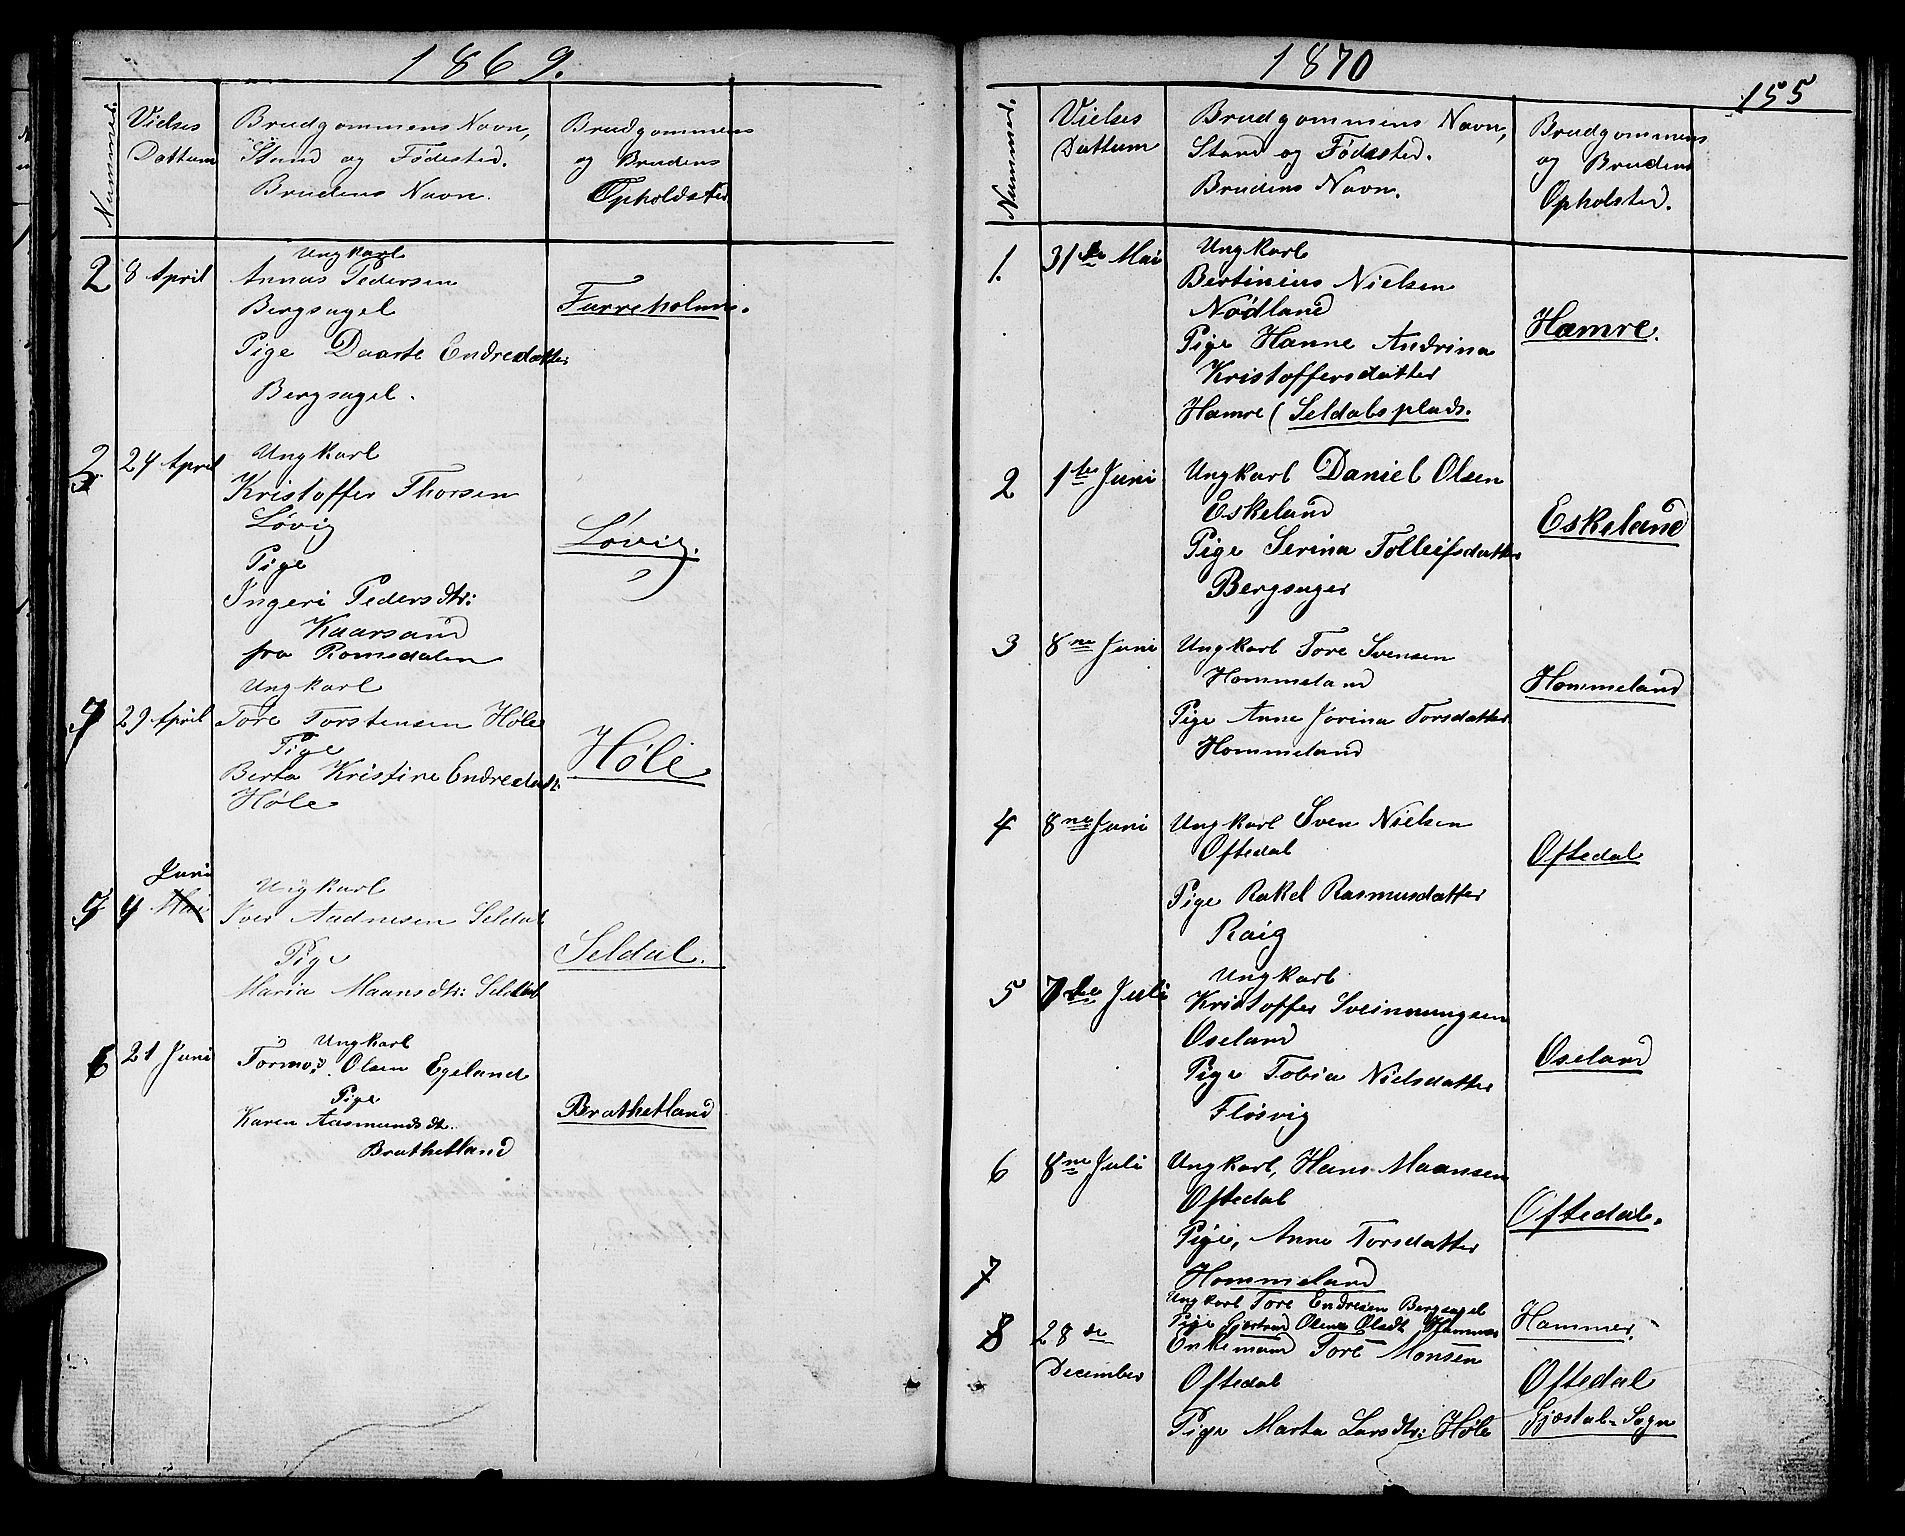 1869.
Nummer.
Vielses
Dattum
Brudgommens Navn,
Stand og Fødested.
Brudens Navn.
Brudgommens
og Brudens
Opholdsted
2
8 April
Ungkarl
Annas Pedersen
Bergsagel
Pige Daarte Endredatter
Bergsagel.
Farreholmen.
3
24 April
Ungkarl
Kristoffer Thorsen
Løvig
Pige
Ingeri Pedersdtr:
Kaarsand
fra Romsdalen
Løvig.
4
29 April
Ungkarl
Tore Torstensen Høle
Pige
Berta Kristine Endredatr.
Høle
Høle
5
Juni
4 Mai
Ungkarl
Iver Audnesen Seldal
Pige
Maria Maansdtr: Seldal
Seldal.
6
21 Juni
Ungkarl
Tormod Olsen Egeland
Pige
Karen Aasmundsdtr.
Brathetland
Brathetland
1870
155
Nummer.
Vielses
Dattum
Brudgommens Navn,
Stand og Fødested.
Brudens Navn.
Brudgommens
og Brudens
Opholsted.
1.
31te Mai
Ungkarl
Bertinius Nielsen
Nødland
Pige Hanne Andrina
Kristoffersdatter
Hamre (Seldalsplads.
Hamre.
2
1te Juni
Ungkarl Daniel Olsen
Eskeland
Pige Serina Tolleifsdatter
Bergsager
Eskeland
3
8ne Juni
Ungkarl Tore Svensen
Hommeland
Pige Anne Jorina Torsdatter
Hommeland
Hommeland
4
8ne Juni
Ungkarl Sven Nielsen
Oftedal
Pige Rakel Rasmusdatter
Raig
Oftedal
5
7de Juli
Ungkarl
Kristoffer Sveinnungsen
Oseland
Pige Tobia Nielsdatter
Fløsvig
Oseland
6
8ne Juli
Ungkarl, Hans Maansen
Oftedal
Pige, Anne Torsdatter
Hommeland
Oftedal.
7
Ungkarl Tore Endresen Bergsagel
Pige Gjertrud Olene Olsdt Hammer
Hammer.
8
28de
December
Enkemand Tore Monsen
Oftedal
Pige Marta Larsdtr: Høle
Oftedal
Gjestal-Sogn